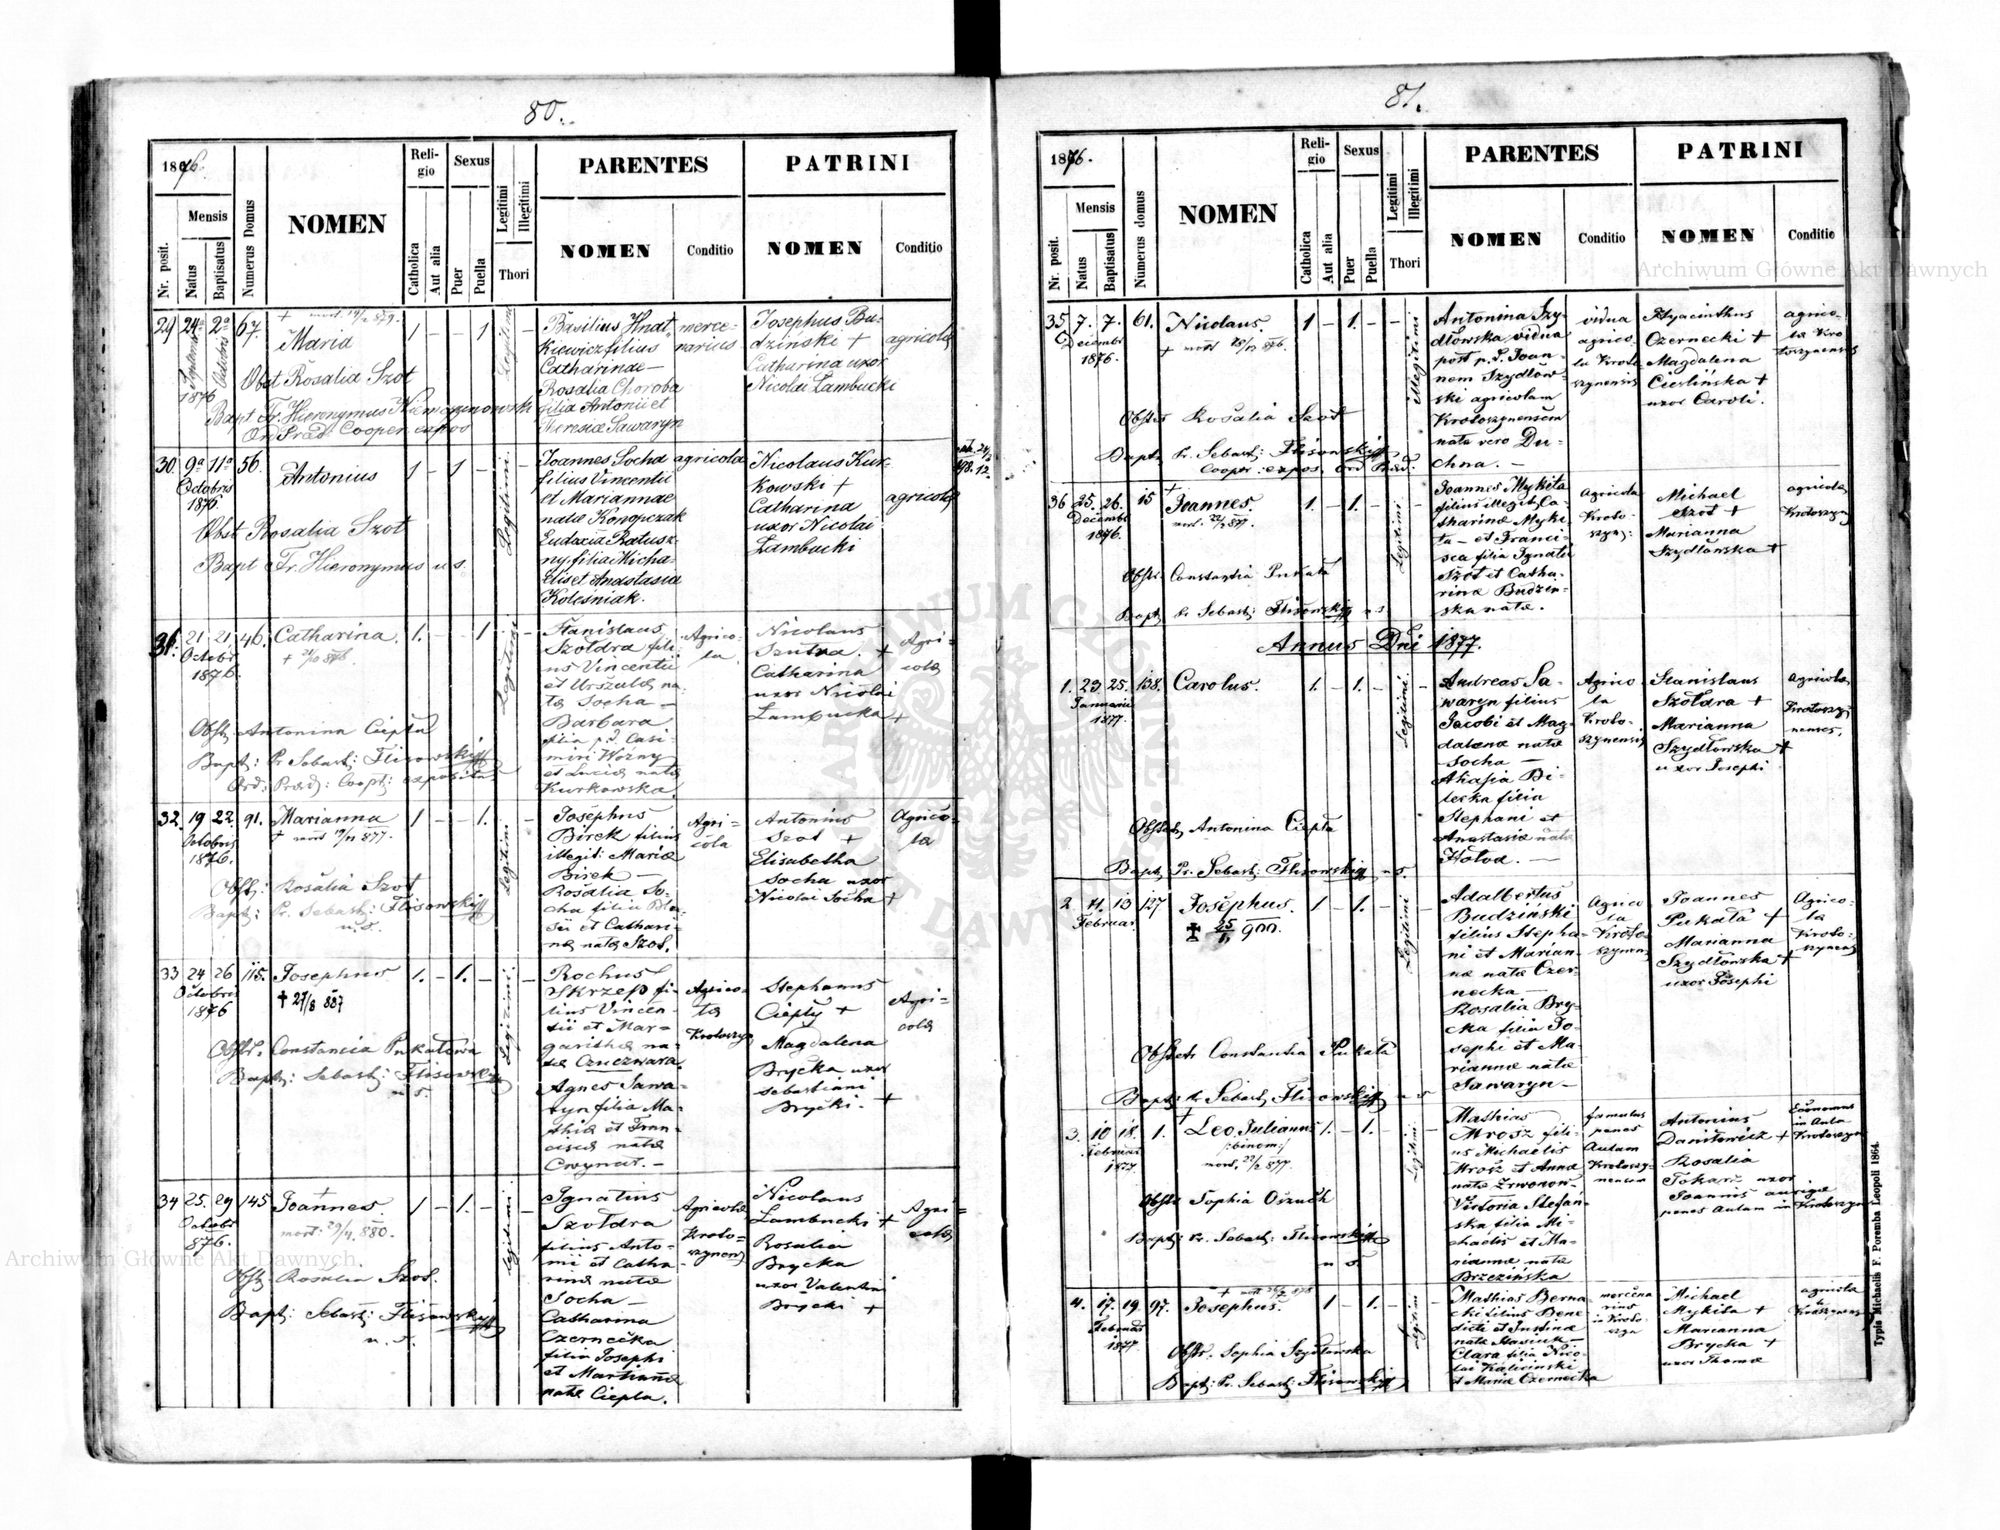 80.
1876.
Nr. posit.
Mensis
Natus
Baptisatus
Numerus Domus
NOMEN
Religio
Catholica
Aut alia
Sexus
Puer
Puella
Legitimi
Illegitimi
Thori
PARENTES
NOMEN
Conditio
PATRINI
NOMEN
Conditio
29 24a 2a 67.
Octobris
1876
Maria
1 – – 1 –
Obst Rosalia Szot
Bapt Fr. Hieronymus
Ord Praed Cooper expos
Basilius Hnat
kiewicz filius
Catharinae –
Rosalia Choroba
filia Antonii et
Theresiae Sawaryn
merce-
narius
Josephus Bu-
dzinski +
Catharina uxor
Nicolai Lambucki
agricola
30. 9a 11a 56.
Octobris
1876.
Antonius
1 – 1 – –
Obst Rosalia Szot
Bapt Fr. Hieronymus u s.
Legitimi.
Joannes Socha
filius Vincentii
et Mariannae
natae Konopczak
Eudoxia Ratusz-
ny filia Micha-
elis et Anastasia
Koleśniak.
agricola
Nicolaus Kur-
kowski +
Catharina
uxor Nicolai
Lambucki
agricola
31. 21 21 46.
Octobr
1876.
Catharina.
1. – – 1 –
Obst Antonina Ciepła
Bapt: Pr. Sebast: Flisowski
Ord: Praed: Coopt: expositus
Legitimi
Stanislaus
Szołdra fili-
us Vincentii
et Urszulae na-
tae Socha –
Barbara
filia p. d. Casi-
miri Woźny
et Luciae natae
Kurkowska.
Agrico-
la.
Nicolaus
Szutra. +
Catharina
uxor Nicolai
Lambucka +
Agri-
cola
32. 19 22. 91.
Octobris
1876.
Marianna
1 – – 1. –
Obst: Rosalia Szot
Bapt: Pr. Sebast: Flisowski
u. s.
Legitimi
Josephus
Birek filius
illegit: Mariae
Birek –
Rosalia So-
cha filia Bla-
sii et Cathari-
nae natae Szot.
Agri-
cola
Antonius
Szot +
Elisabetha
Socha uxor
Nicolai Socha +
Agrico-
la
33 24 26 115.
Octobris
1876
Josephus
+ 27/8 887
1. – 1. – –
Obst. Constancia Pukałowa
Bapt: Sebast: Flisowski
u s.
Legitimi.
Rochus
Skrzep fi-
lius Vincen-
tii et Mar-
garithae na-
tae Czuczwara.
Agnes Sawa-
ryn filia Ma-
thiae et Fran-
ciscae natae
Cwynar. –
Agrico-
la
Stephanus
Ciepły +
Magdalena
Brycka uxor
Sebastiani
Brycki. +
Agri-
cola
34 25. 29 145
Octobr
876.
Joannes.
mort: 29/4 880.
1 – 1. – –
Obst: Rosalia Szot.
Bapt: Sebast: Flisowski
u. s.
Legitimi
Ignatius
Szołdra
filius Anto-
nii et Catha-
rinae natae
Socha –
Catharina
Czernecka
filia Josephi
et Mariannae
natae Ciepła.
Agricola
Nicolaus
Lambucki +
Rosalia
Brycka
uxor Valentini
Brycki +
Agri-
cola
81.
1876.
Nr. posit.
Mensis
Natus
Baptisatus
Numerus domus
NOMEN
Religio
Catholica
Aut alia
Sexus
Puer
Puella
Legitimi
Illegitimi
Thori
PARENTES
NOMEN
Conditio
PATRINI
NOMEN
Conditio
35 7. 7. 61.
Decembr
1876.
Nicolaus.
1 – 1. – –
Obst Rosalia Szot
Bapt Pr. Sebast: Flisowski
Coopr: expos. Ord Praed.
Illegitimi
Antonina Szy-
dłowska vidua
post p. d. Joan-
nem Szydłow-
ski agricolam
Krotoszynensem
nata vero Du-
chna. –
vidua
agrico-
la Kroto-
szynensis
Hyacinthus
Czernecki +
Magdalena
Cieslińska +
uxor Caroli.
agrico-
la Kro
toszynensis
36 25. 26. 15
Decembr
1876.
Joannes.
1. – 1. – –
Obst. Constantia Pukała
Bapt Pr. Sebast: Flisowski u s.
Legitimi
Joannes Mykita
filius illegit. Ca-
tharinae Myki-
ta – et Franci-
sca filia Ignatii
Szot et Catha-
rinae Budzin-
ska nata.
Agricola
Kroto-
szyn:
Michael
Szot +
Marianna
Szydłowska +
agricola
Krotoszyn
Annus Dni 1877.
1. 23. 25. 138.
Januarii
1877.
Carolus.
1. – 1. – –
Obstet Antonina Ciepła
Bapt Pr. Sebast: Flisowski u s
Legitimi.
Andreas Sa-
waryn filius
Jacobi et Mag-
dalenae natae
Socha –
Bi-
lecka filia
Stephani et
Anastasiae natae
Hołod. –
Agrico-
la
Kroto-
szynensis
Stanislaus
Szołdra +
Marianna
Szydłowska +
uxor Josephi
Agricola
Krotoszy-
nenses.
2 11. 13 127
Februar.
Josephus.
25/5 900.
1 – 1. – –
Obstetr Constantia Pukała
Bapt. Pr Sebast Flisowski u s
Legitimi
Adalbertus
Budziński
filius Stepha-
ni et Marian-
nae natae Czer-
necka –
Rosalia Bry-
cka filia Jo-
sephi et Ma-
riannae natae
Sawaryn –
Agrico
la
Kroto-
szynens
Joannes
Pukała +
Marianna
Szydłowska +
uxor Josephi
Agrico-
la
Kroto-
szynens
3. 10 18. 1.
Februar
1877
Leo, Julianus
/:binom:/
mort. 22/2 877.
1. – 1. – –
Obst Sophia Orzuch
Bapt: Pr. Sebast: Flisowski
u s.
Legitimi
Mathias
Mrosz fili-
us Michaelis
Mrosz et Annae
natae
Victoria Stefan-
ska filia Mi-
chaelis et Ma-
riannae natae
Brzezińska
famulus
penes
Aulam
Krotoszy-
nensem
Antonius
Daniłowicz +
Rosalia
Tokarz uxor
Joannis aurigae
penes Aulam in Krotoszyn
Oeconomus
in Aula
Krotoszyn
4. 17. 19. 97.
Februar
1877
Josephus.
1 – 1. – –
Obstr. Sophia Szydłowska
Bapt: Pr. Sebast: Flisowski
Legitimi
Mathias Berna
cki filius Bene
dicti et Justinae
natae
Clara filia Nico-
lai Kalicinski
et Mariae Czernecka
mercena
rius
in Kroto-
szyn
Michael
Mykita +
Marianna
Brycka +
uxor Thomae
agricola
Typis Michaelis F. Poremba Leopoli 1864.
Archiwum Główne Akt Dawnych
Archiwum Główne Akt Dawnych
ARCHIWUM GŁÓWNE AKT DAWNYCH